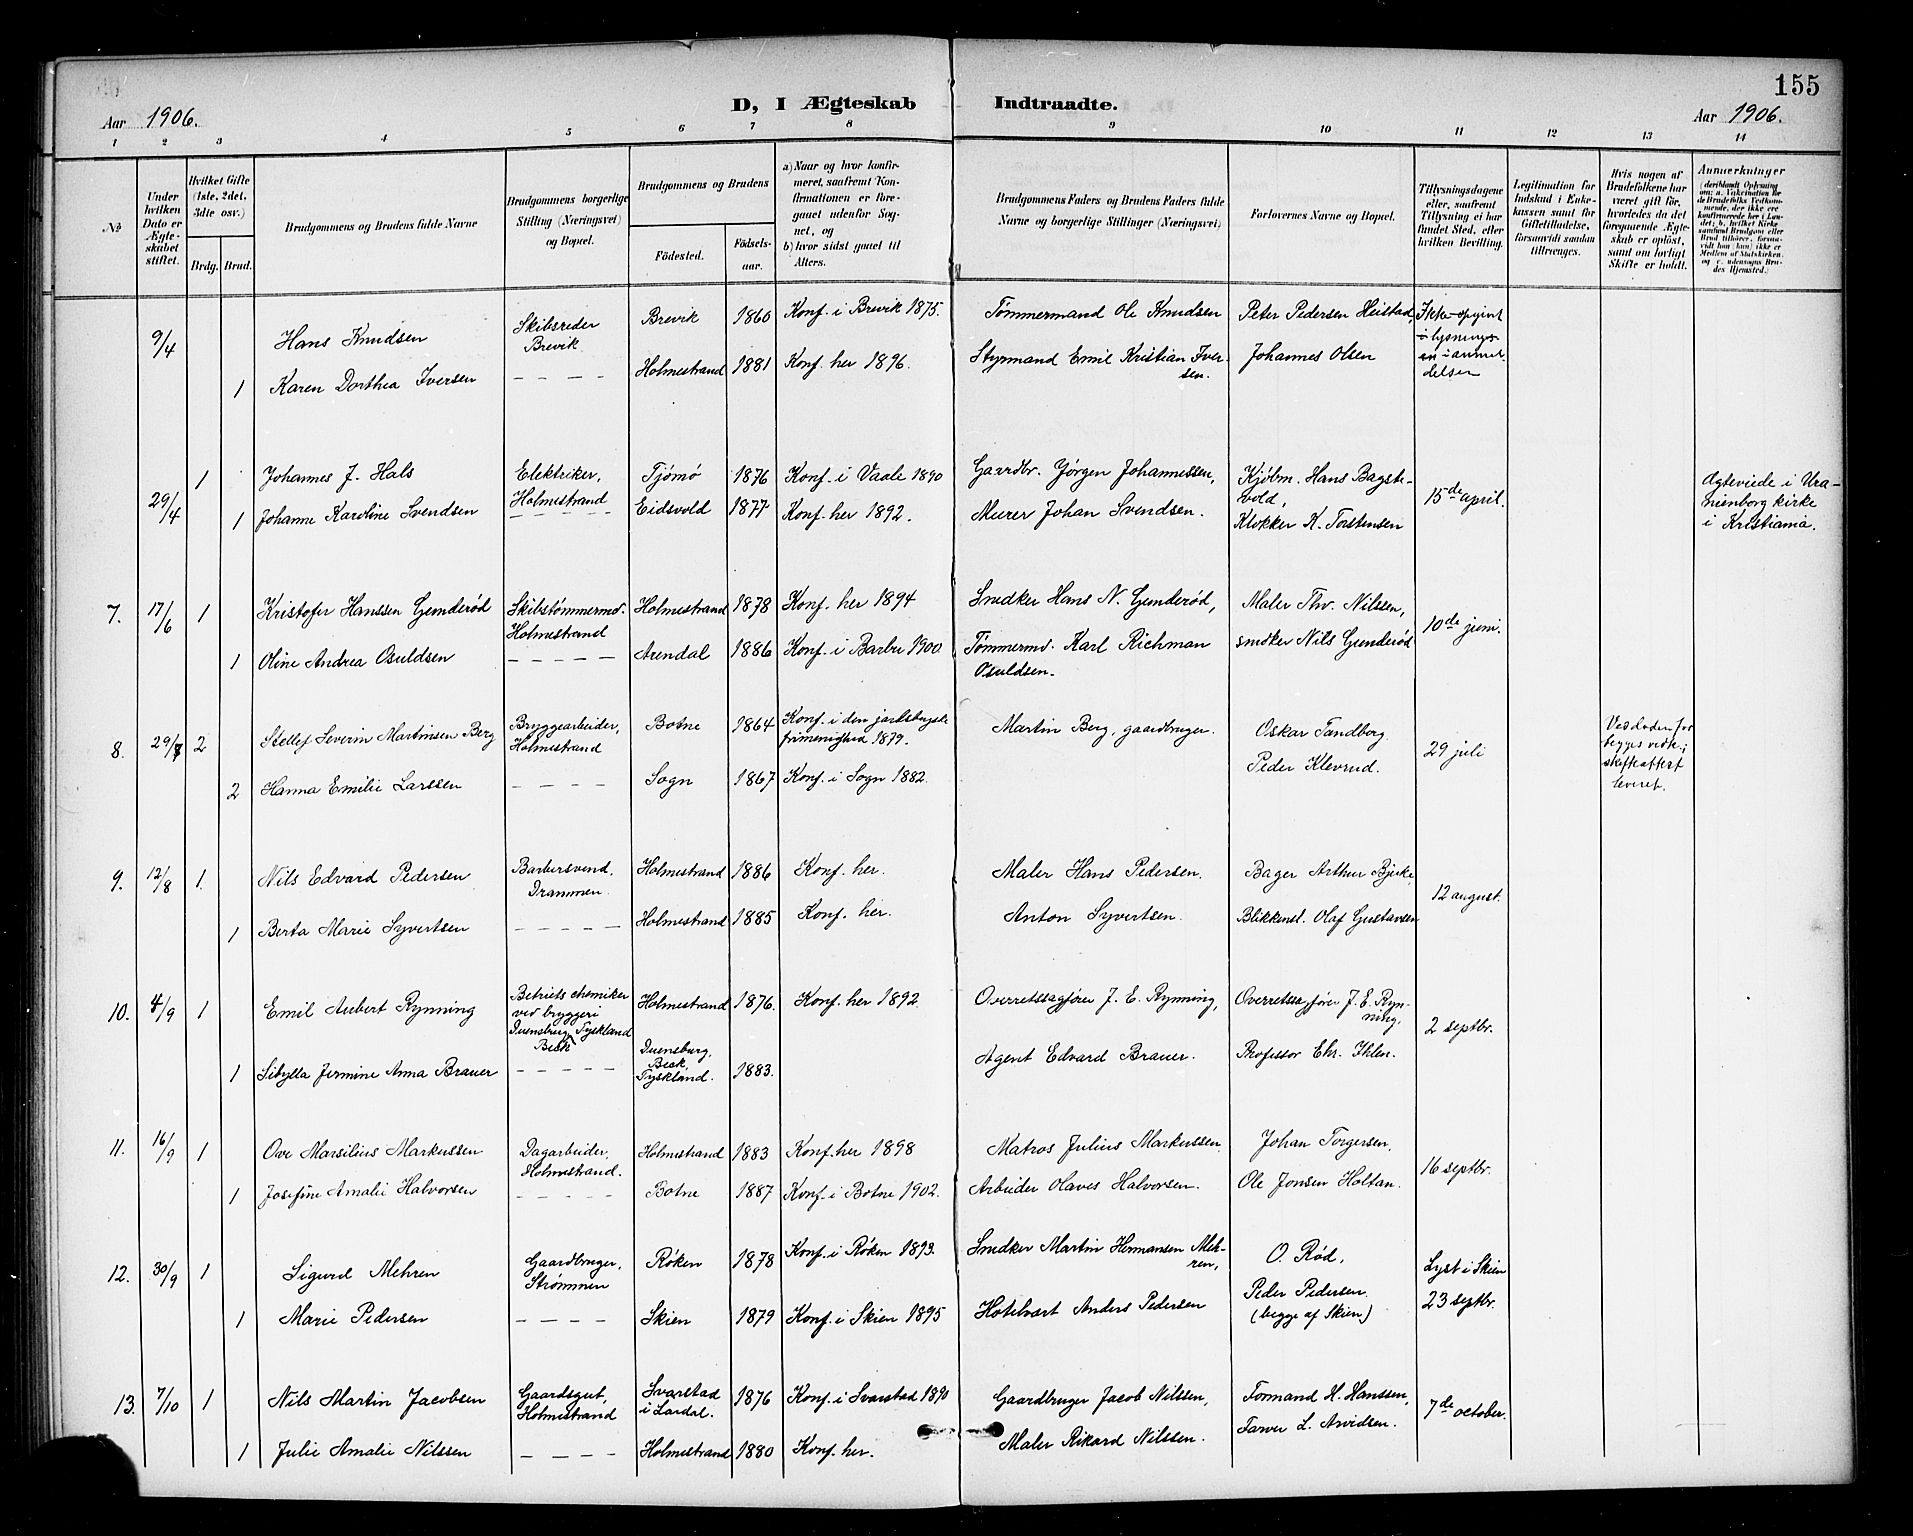 155
D, I Ægteskab Indtraadte.
Aar 1906. Aar 1906.
1 2 3 4 5 6 7 8 9 10 11 12 13 14
№
Under hvilken Dato er Ægteskabet stiftet.
Hvilket Gifte (1ste, 2det, 3die osv.)
Brdg. Brud.
Brudgommens og Brudens fulde Navne
Brudgommens borgerlige Stilling (Næringsvei) og Bopæl.
Brudgommens og Brudens
Födested. Födselsaar.
a) Naar og hvor konfirmeret, saafremt Konfirmationen er foregaaet udenfor Sognet, og
b) hvor sidst gaaet til Alters.
Brudgommens Faders og Brudens Faders fulde Navne og borgerlige Stillinger (Næringsvei)
Forlovernes Navne og Bopæl.
Tillysningsdagene eller, saafremt Tillysning ei har fundet Sted, efter hvilken Bevilling.
Legitimation for Indskud i Enkekassen samt for Giftetilladelse, forsaavidt saadan tiltrænges.
Hvis nogen af Brudefolkene har været gift før, hvorledes da det foregaaende Ægteskab er opløst, samt om lovligt Skifte er holdt.
Anmerkninger
(deriblandt Oplysning om: a. Vakcination for de Brudefolks Vedkommende, der ikke ere konfirmerede her i Landet; b. hvilket Kirkesamfund Brudgom eller Brud tilhører, forsaavidt han (hun) ikke er Medlem af Statskirken, og c. udensogns Brudes Hjemsted.)
9/4 Hans Knudsen Skibsreder Brevik Brevik 1860 Konf. i Brevik 1875. Tømmermand Ole Knudsen Peter Pedersen Heistad, Ikke opgivt
i lysnings-
en i anmel-
delsen
1 Karen Dorthea Iversen – – – – Holmestrand 1881 Konf. her 1896. Styrmand Emil Kristian Iversen. Johannes Olsen
29/4 1 Johannes J. Hals Elektriker, Holmestrand Tjømø 1876 Konf. i Vaale 1890 Gaardbr. Jørgen Johannessen, Kjøbm. Hans Bagstevold, 15de april. Ægteviede i Uranienborg kirke i Kristiania.
1 Johanne Karoline Svendsen – – – – Eidsvold 1877 Konf. her 1892. Murer Johan Svendsen. Klokker K. Torstensen
7. 17/6 1 Kristofer Hanssen Gunderød Skibstømmermd. Holmestrand Holmestrand 1878 Konf. her 1894 Snedker Hans N. Gunderød, Maler Thv. Nilssen, 10de juni.
1 Oline Andrea Osuldsen – – – – – Arendal 1886 Konf. i Barbu 1900 Tømmermd. Karl Richman Osuldsen. snedker Nils Gunderød
8. 29/7 2 Stellef Severin Martinsen Berg Bryggearbeider, Holmestrand Botne 1864 Konf. i den jarlsbergske frimenighed 1879. Martin Berg, gaardbruger. Oskar Tandberg. 29 juli Ved døden for begges vedk.; skifteattest leveret.
2 Hanna Emilie Larssen – – – – Sogn 1867 Konf. i Sogn 1882. Peder Klevrud.
9. 12/8 1. Nils Edvard Pedersen Barbersvend, Drammen. Holmestrand 1886 Konf. her. Maler Hans Pedersen. Bager Arthur Bjerke, 12 august.
1 Berta Marie Syvertsen – – – – – Holmestrand 1885 Konf. her. Anton Syvertsen. Blikkensl. Olaf Gustavsen
10. 4/9 1 Emil Aubert Rynning Betriets chemiker ved bryggeri Beck Tyskland Holmestrand 1876. Konf. her 1892. Overretssagfører J. E. Rynning, Overretssagfører J. E. Rynning, 2 septbr.
1 Sibylla Jermine Anna Brauer – – – – – Beck, Tyskland. 1883. Agent Edvard Brauer. Professor Chr. Ihlen.
11. 16/9 1 Ove Marsilius Markussen Dagarbeider, Holmestrand. Holmestrand 1883 Konf. her 1898 Matros Julius Markussen, Johan Torgersen, 16 septbr.
1 Josefine Amalie Halvorsen – – – – Botne 1887 Konf. i Botne 1902. Arbeider Olaves Halvorsen. Ole Jonsen Holtan.
12. 30/9 1 Sigurd Mehren Gaardbruger, Strømmen Røken 1878 Konf. i Røken 1893. Snedker Martin Hermansen Mehren, O. Rød, Lyst i Skien 23 septbr.
1 Marie Pedersen – – – – Skien 1879 Konf. i Skien 1895 Hotelvært Anders Pedersen Peder Pedersen. (begge af Skien)
13. 7/10 1 Nils Martin Jacobsen Gaardsgut, Holmestrand Svarstad i Lardal. 1876 Konf. i Svarstad 1890 Gaardbruger Jacob Nilssen, Formand H. Hanssen, 7de october.
1 Julie Amalie Nilssen – – – – Holmestrand 1880 Konf. her. Maler Rikard Nilssen. Farver L. Arvidsen.